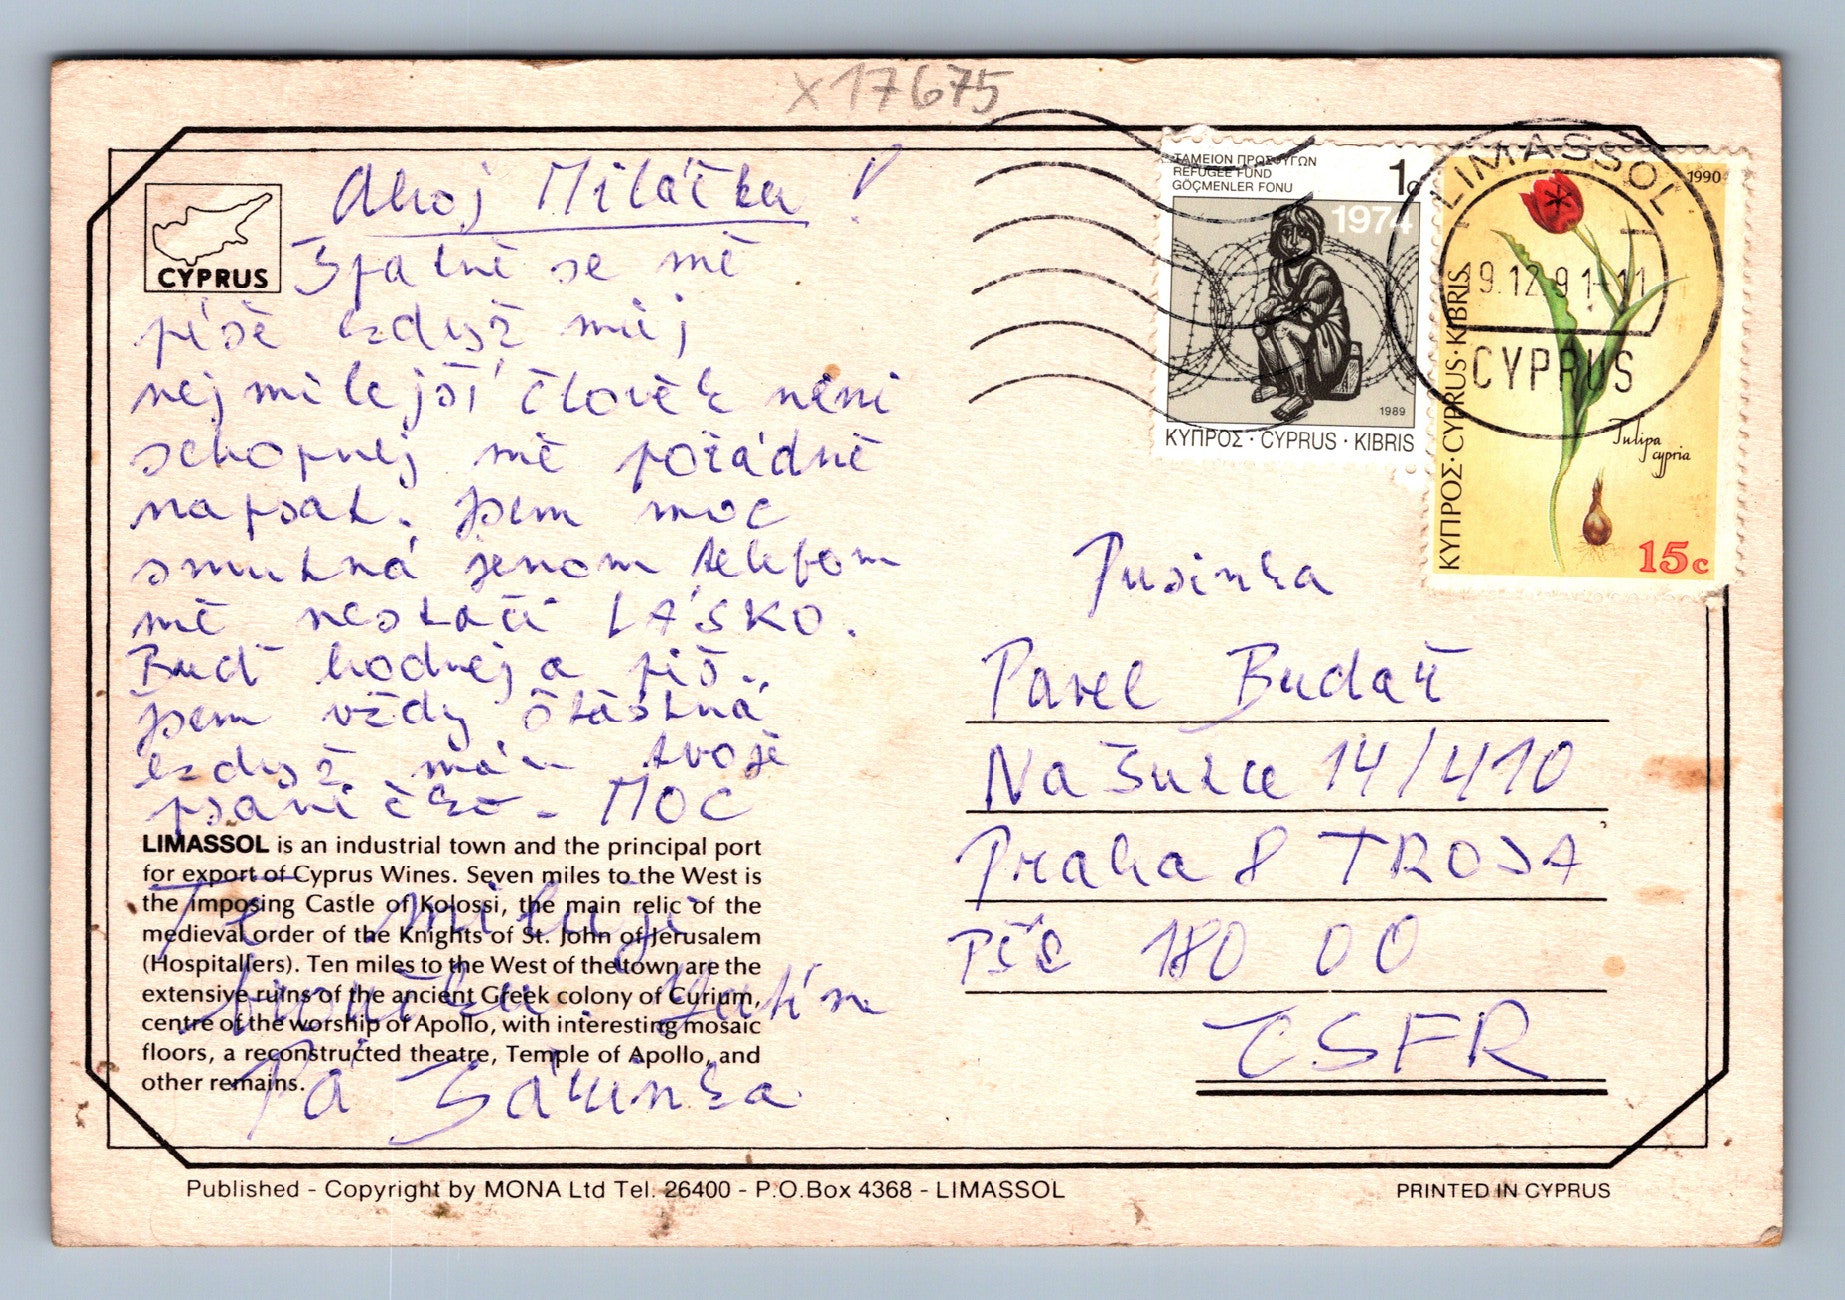 x17675
Ahoj Miláčku!
Špatně se mě
píše když můj
nejmilejší člověk není
schopnej mě pořádně
napsat. Jsem moc
smutná jenom telefon
mě nestačí LÁSKO.
Buď hodnej a piš..
jsem vždy šťastná
když mám tvoje
psaníčko. MOC
Tě miluji
Pá
CYPRUS
LIMASSOL is an industrial town and the principal port
for export of Cyprus Wines. Seven miles to the West is
the imposing Castle of Kolossi, the main relic of the
medieval order of the Knights of St. John of Jerusalem
(Hospitallers). Ten miles to the West of the town are the
extensive ruins of the ancient Greek colony of Curium,
centre of the worship of Apollo, with interesting mosaic
floors, a reconstructed theatre, Temple of Apollo, and
other remains.
Published - Copyright by MONA Ltd Tel. 26400 - P.O.Box 4368 - LIMASSOL
PRINTED IN CYPRUS
ΤΑΜΕΙΟΝ ΠΡΟΣΦΥΓΩΝ
REFUGEE FUND
GÖÇMENLER FONU
1c
1974
1989
ΚΥΠΡΟΣ · CYPRUS · KIBRIS
1990
ΚΥΠΡΟΣ·CYPRUS·KIBRIS
Tulipa
cypria
15c
LIMASSOL
9.12.91-11
CYPRUS
Pusinka
Pavel Budař
Na Šutce 14/410
Praha 8 TROJA
PSČ 180 00
ČSFR